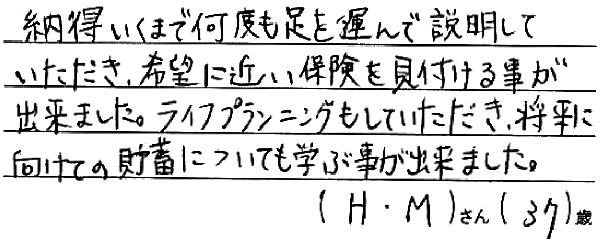 納得いくまで何度も足を運んで説明して
いただき、希望に近い保険を見付ける事が
出来ました。ライフプランニングもしていただき、将来に
向けての貯蓄についても学ぶ事が出来ました。
(H・M)さん(37)歳